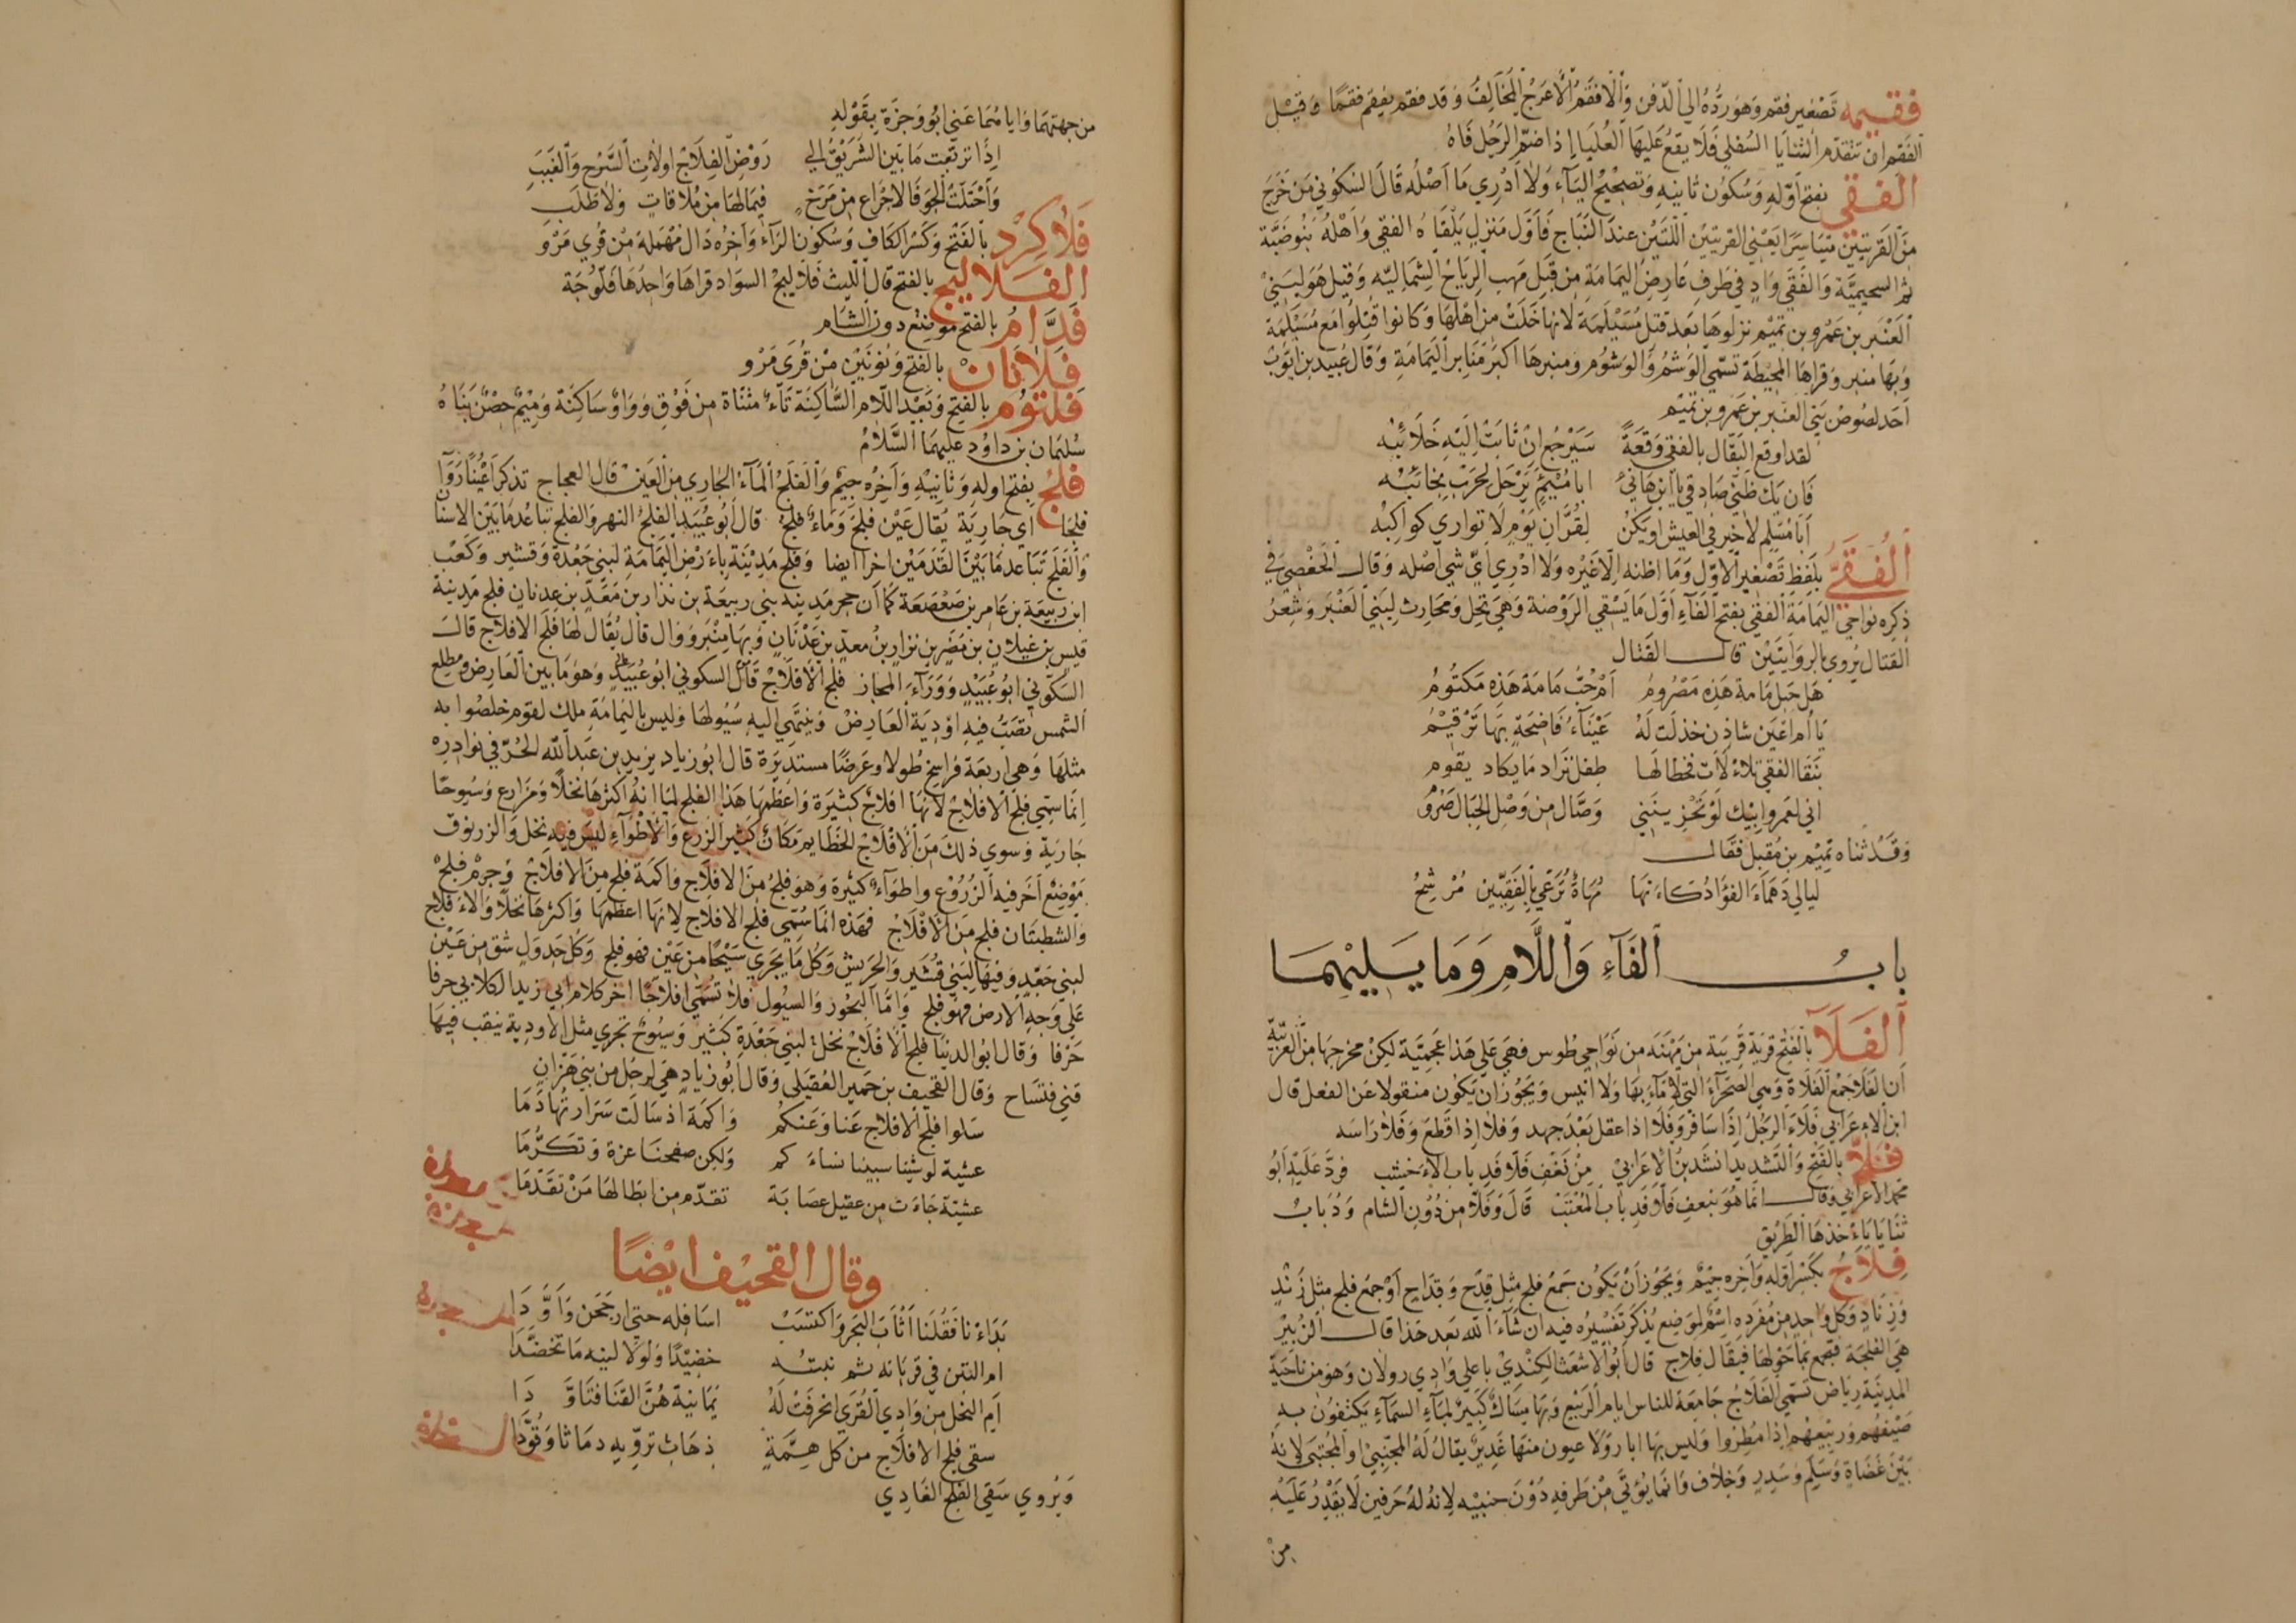 فقيمه تصغير فقم وهو رده الي الذقن والافقم الاعرج المخالف وقد فقم يفقم فقما وقيل
الفقم ان تتقدم الثنايا السفلي فلا يقع عليها العليا اذا ضم الرجل فاه
الفقي بفتح اوله وسكون ثانيه وتصحيح الياء ولا ادري ما اصله قال السكوني من خرج
من القريتين متياسرا يعني القريتين اللتين عند النباج فاول منزل يلقاه الفقي واهله بنو ضبة
ثم السحيمية والفقي واد في طرف عارض اليمامة من قبل مهب الرياح الشمالية وقيل هو لبني
العنبر بن عمرو بن تميم نزلوها بعد قتل مسيلمة لانها خلت من اهلها وكانوا قتلوا مع مسيلمة
وبها منبر وقراها المحيطة تسمي الوشم والوشوم ومنبرها اكبر منابر اليمامة وقال عبيد بن ايوب
احد لصوص بني العنبر بن عمرو بن تميم
لقد اوقع البقال بالفقي وقعة سيرجع ان ثابت اليه خلائبه
فان يك ظني صادقي يا ابن هاني ايا مئيم ترحل لحرب نجائبه
ابا مسلم لا خير في العيش او يكن لقران يوم لا تواري كواكبه
الفقي بلفظ تصغير الاول وما اظنه الا غيره ولا ادري اي شي اصله وقال الحفصي في
ذكره نواحي اليمامة الفقي بفتح الفاء اول ما يسقي الروضة وهي نخل ومحارث لبني العنبر وشعر
القتال يروي بالروايتين قال القتال
هل حبل مامة هذه مصروم ام حب مامة هذه مكتوم
يا ام اعين شادن خذلت له عيناء فاضحة بها ترقيم
بنقا الفقي تلالات فحظا لها طفل نراد ما يكاد يقوم
اني لعمر وابيك لو تحزينني وصال من وصل الحبال
وقد ثناه تميم بن مقبل فقال
ليالي دهماء الفؤاد كانها مهاة ترعي بالفقيين مرشح
باب الفاء واللام وما يليهما
الفلا بالفتح قرية قريبة من مهنة من نواحي طوس فهي علي هذا عجمية لكن مخرجها من العربية
ان الفلا جمع الفلاة وهي الصحراء التي لا ماء بها ولا انيس ويجوز ان يكون منقولا عن الفعل قال
ابن الاعرابي فلاء الرجل اذا سافر وفلا اذا عقل بعد جهد وفلا اذا قطع وفلا راسه
فلا بالفتح والتشديد انشد بن الاعرابي من نعف فلا فدباب الاخيشب فرد عليه ابو
محمد الاعرابي وقال انما هو بنعف فلا فدباب المعتب قال وفلا من دون الشام ودباب
ثنايا ياءخذها الطريق
فلاج بكسر اوله واخره جيم ويجوز ان يكون جمع فلج مثل قدح وقداح او جمع فلج مثل زند
وزناد وكل واحد من مفرده اسم لموضع يذكر تفسيره فيه ان شاء الله بعد هذا قال الزبير
هي الفلجة فتجمع بما حولها فيقال فلاج قال ابو الاشعث الكندي باعلي وادي رولان وهو من ناحية
المدينة رياض تسمي الفلاج جامعة للناس ايام الربيع وبها مساك كبير لماء السماء يكتفون به
صيفهم وربيعهم اذا مطروا وليس بها ابار ولا عيون منها غدير يقال له المجتبي او المجتبي لانه
بين عضاة وسلم وسدر وخلاف وانما يؤتي من طرفيه دون جنبيه لانه له حرفين لا يقدر عليه
من
من جهتهما واياهما عني ابو وجزة بقوله
اذا تربعت ما بين الشريق الي روض الفلاج اولات السرح والعبب
واحتلت الجو فالاجزاع من مرخ فيما لها من ملاقات ولا طلب
فلاكرد بالفتح وكسر الكاف وسكون الراء واخره دال مهملة من قري مرو
الفلاليج بالفتح قال الليث فلاليج السواد قراها واحدها فلوجة
فدام بالفتح موضع دون الشام
فلانان بالفتح ونونين من قري مرو
فلتوم بالفتح وبعد اللام الساكنة تاء مثناة من فوق وواو ساكنة وميم حصن بناه
سليمان بن داود عليهما السلام
فلج بفتح اوله وثانيه واخره جيم والفلج الماء الجاري من العين قال العجاج تذكرا عينا روا
فلجا اي جارية يقال عين فلج وماء فلج قال ابو عبيد الفلج النهر والفلج تباعد ما بين الاسنان
والفلج تباعد ما بين القدمين اخرا ايضا وفلج مدينة باءرض اليمامة لبني جعدة وقشير وكعب
ابن ربيعة بن عامر بن صعصعة كما ان حجر مدينة بني ربيعة بن نذار بن معد بن عدنان فلج مدينة
قيس بن غيلان بن مضر بن نزار بن معد بن عدنان وبها منبر ووال قال يقال لها فلج الافلاج قال
السكوني ابو عبيد ووراء المجاز فلج الافلاج قال السكوني ابو عبيد وهو ما بين العارض ومطلع
الشمس تصب فيه اودية العارض وينتهي اليه سيولها وليس باليمامة ملك لقوم خلصوا به
مثلها وهي اربعة فراسخ طولا وعرضا مستديرة قال ابو زياد يزيد بن عبد الله الحر في نوادره
انما سمي فلج الافلاج لانها افلاج كثيرة واعظمها هذا الفلج لما انه اكثرها نخلا ومزارع وسيوحا
جارية وسوي ذلك من الافلاج الخطايم مكان كثير الزرع والاطواء ليس فيه نخل والزرنوق
موضع اخر فيه الزروع واطواء كثيرة وهو فلج من الافلاج واكمة فلج من الافلاج وجرم فلج
والشطبتان فلج من الافلاج فهذه انما سمي فلج الافلاج لانها اعظمها واكثرها نخلا والاءفلاج
لبني جعد وفيها لبني قشير والحريش وكل ما يجري سيحا من عين فهو فلج وكل جدول شق من عين
علي وجه الارض فهو فلج واما البحور والسيول فلا تسمي افلاجا اخر كلام ابي زيد الكلابي حرفا
حرفا وقال ابو الدنيا فلج الافلاج نخل لبني جعدة كثير وسيوح تجري مثل الاودية ينقب فيها
قني فتساح وقال القحيف بن حمير العقيلي وقال ابو زياد هي لرجل من بني هزان
سلوا فلج الافلاج عنا وعنكم واكمة اذ سالت سرارتها دما
عشية لو شينا سبينا نساءكم ولكن صفحنا عزة وتكرما
عشية جاءت من عقيل عصابة تقدم من ابطالها من تقدما
وقال القحيف ايضا
بداءنا فقلنا اثاب البحر واكتست اسافله حتي ارجحن واودا
ام التين في قريانه شم نبته خضيدا ولولا لينه ما تخضدا
ام النخل من وادي القري انحرفت له يمانية هن القنا فتاودا
سقي فلج الافلاج من كل همة ذهاب ترويه دماثا وقودا
ويروي سقي الفلج الغادي